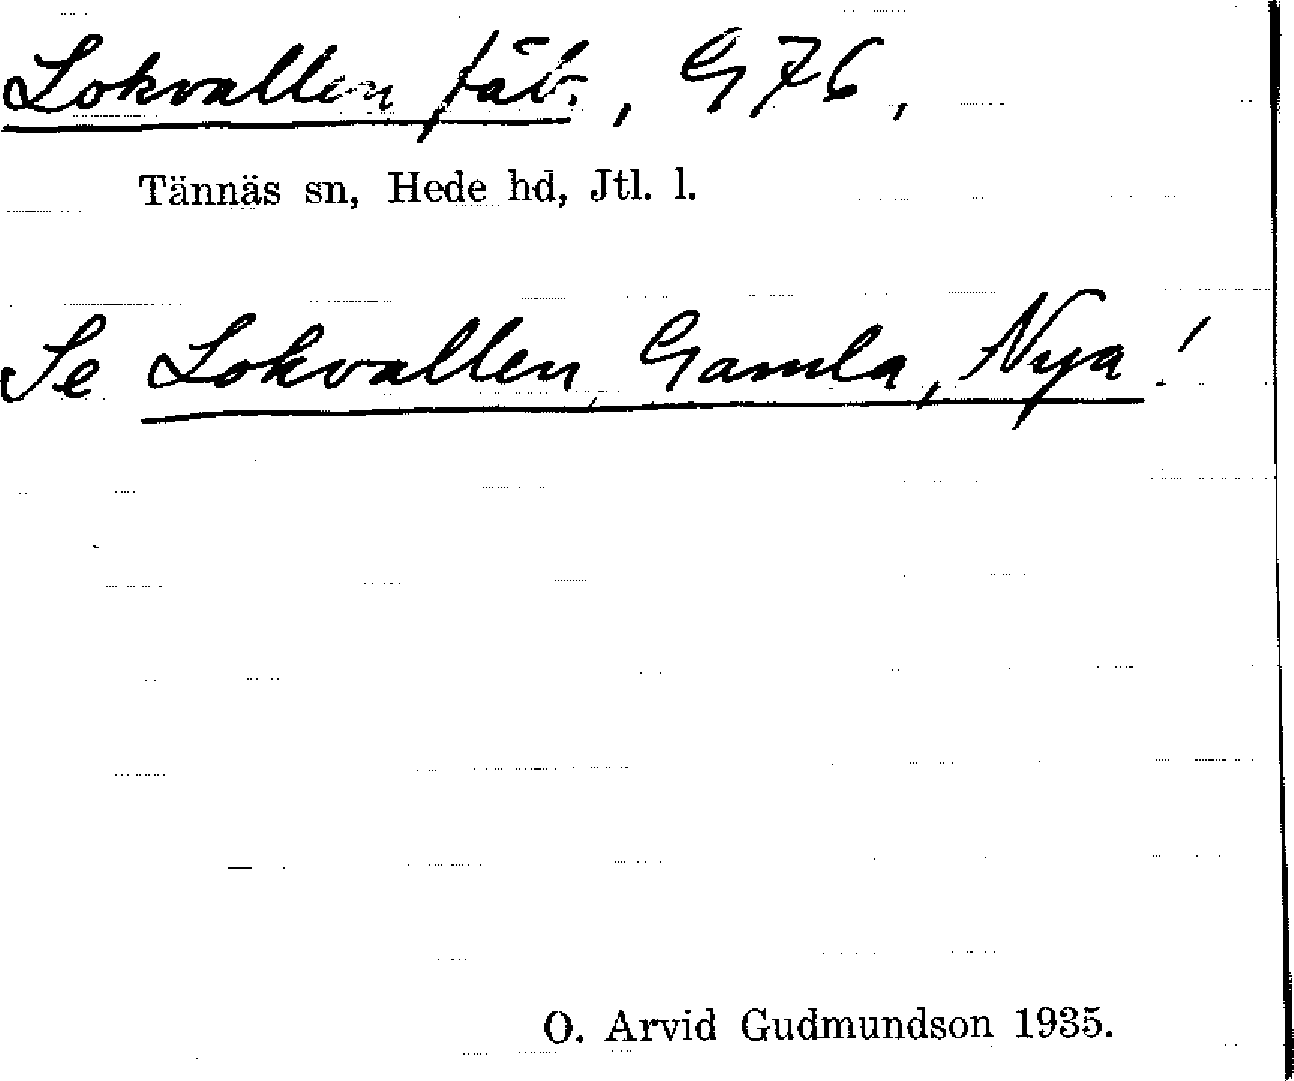 Lokvallen fäb., G 76,
Tännäs sn, Hede hd, Jtl. l.
Se Lokvallen, Gamla, Nya!
O. Arvid Gudmundson 1935.